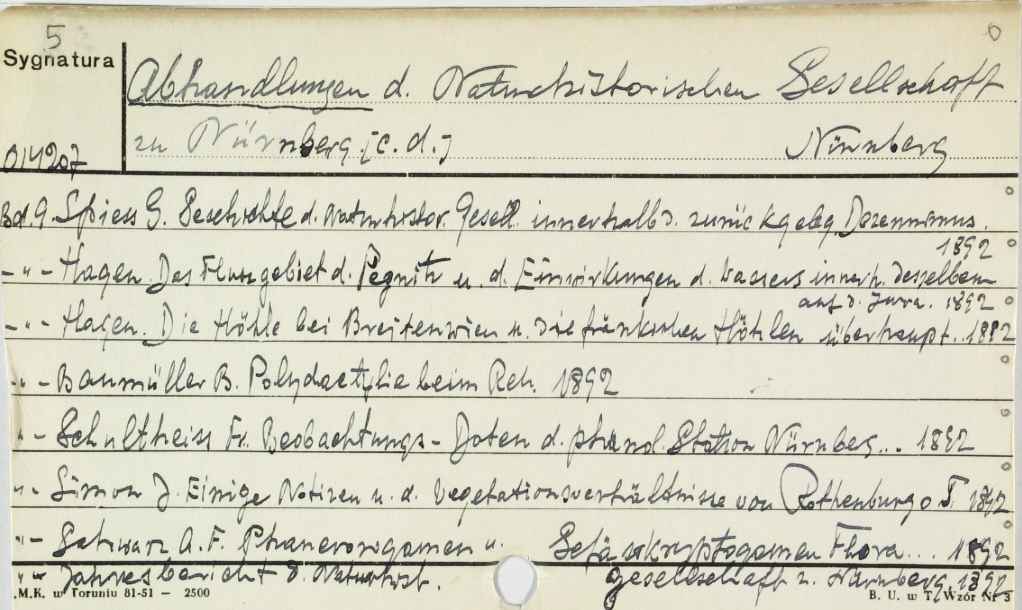 5
Sygnatura
Abhandlungen d. Naturhistorischen Gesellschaft
zu Nürnberg. [c.d.] Nürnberg
014207
Bd. 9. Spiess G. Geschichte d. Naturhistor. Gesell. innerhalb d. zurück geleg. Dezenniums.
1892
- " - Hagen. Das Flussgebiet d. Pegnitz u. d. Einwirkungen d. Wassers innerh. desselben
auf d. Jura. 1892
- " - Hagen. Die Höhle bei Breitenwien u. die fränkischen Höhlen überhaupt.. 1892
- " - Baumüller B. Polydactylie beim Reh. 1892
" - Schultheiss Fr. Beobachtungs - Daten d. phänol. Station Nürnberg... 1892
" - Simon J. Einige Notizen u. d. Vegetationsverhältnisse von Rothenburg o T. 1892
" - Schwarz A. F. Phanerogamen u. Gefässkryptogamen Flora... 1892
" - Jahresbericht d. Naturhist. Gesellschaft z. Nürnberg. 1892
.M.K. w Toruniu 81-51 — 2500 B. U. w T. Wzór Nr 3